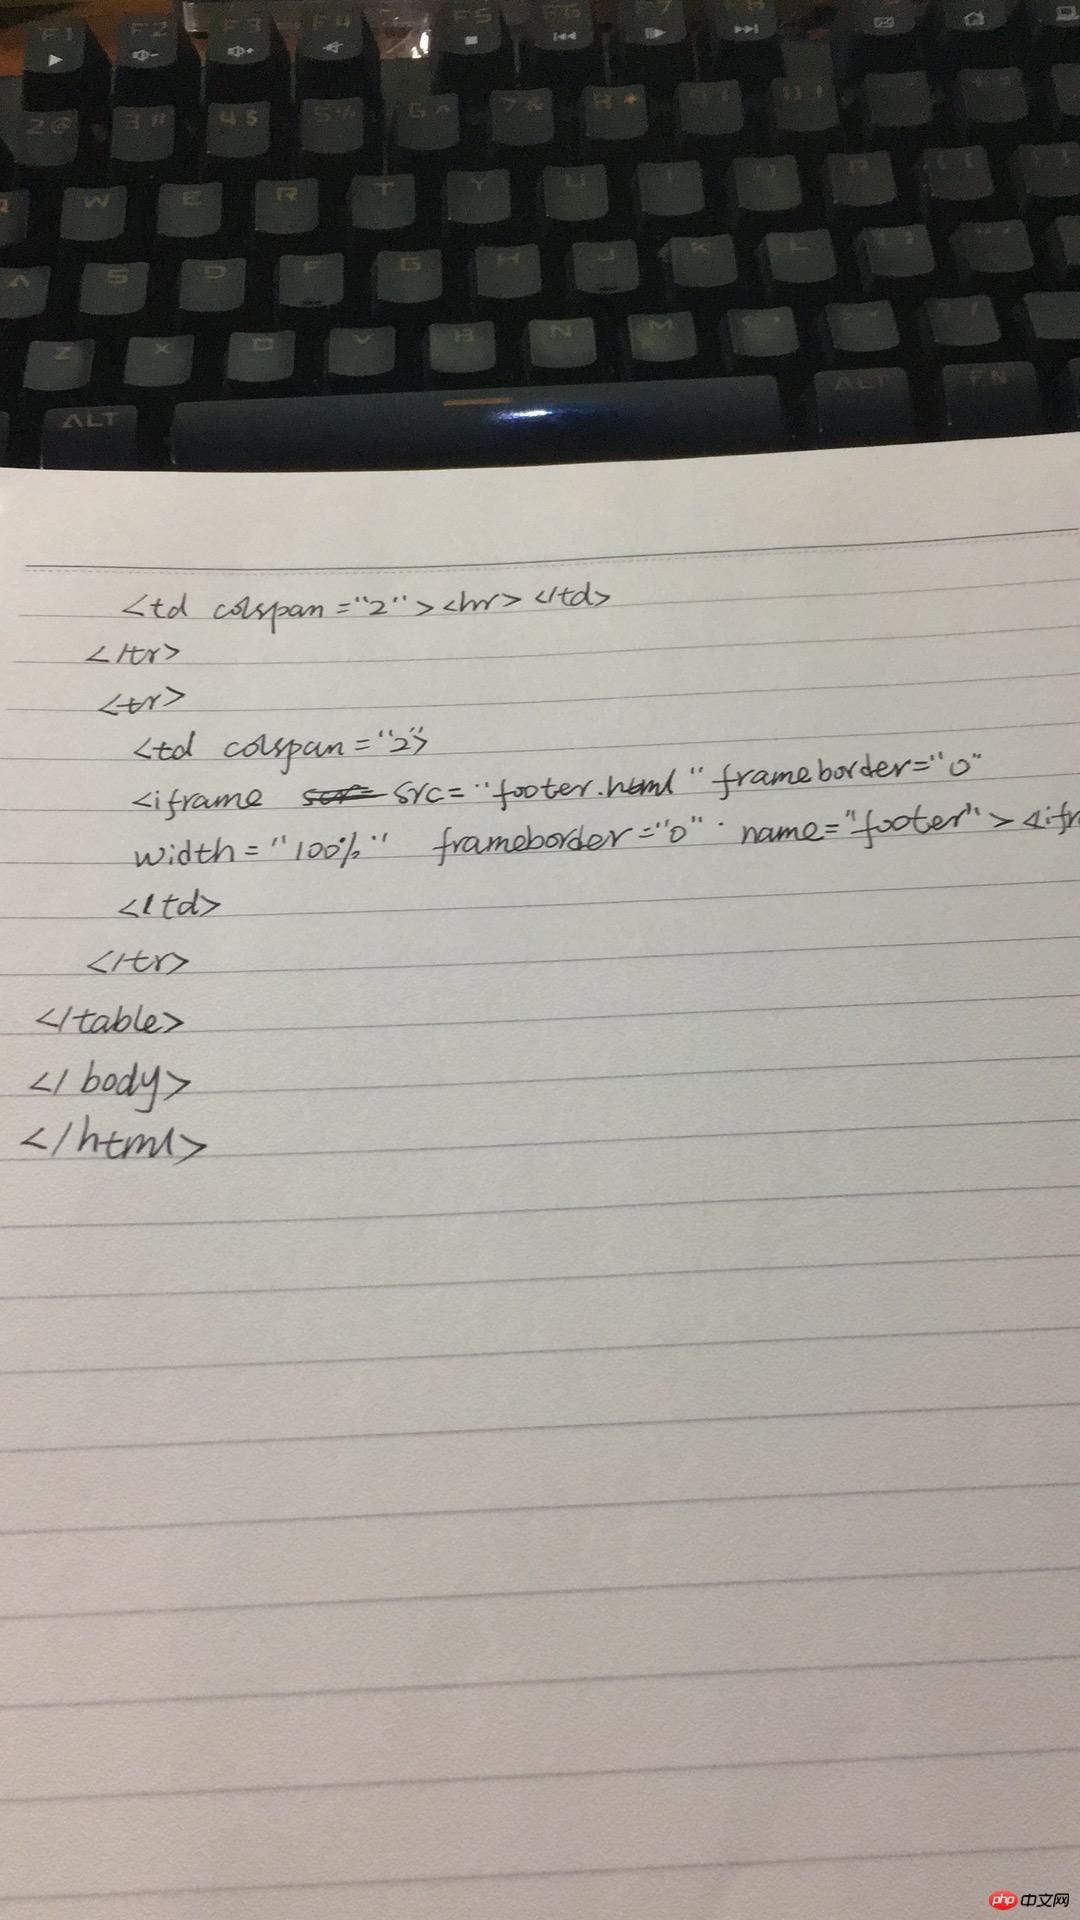 F1 F2 F3 F4 F5 F6 F7 F8
2@ 3# 4$ 5% 6^ 7& 8*
W E R T Y U I
A S D F G H J K L
Z X V B N M
ALT ALT FN
<td colspan="2"><hr></td>
</tr>
<tr>
<td colspan="2">
<iframe src="footer.html" frameborder="0"
width="100%" frameborder="0" name="footer"><ifr
</td>
</tr>
</table>
</body>
</html>
php 中文网